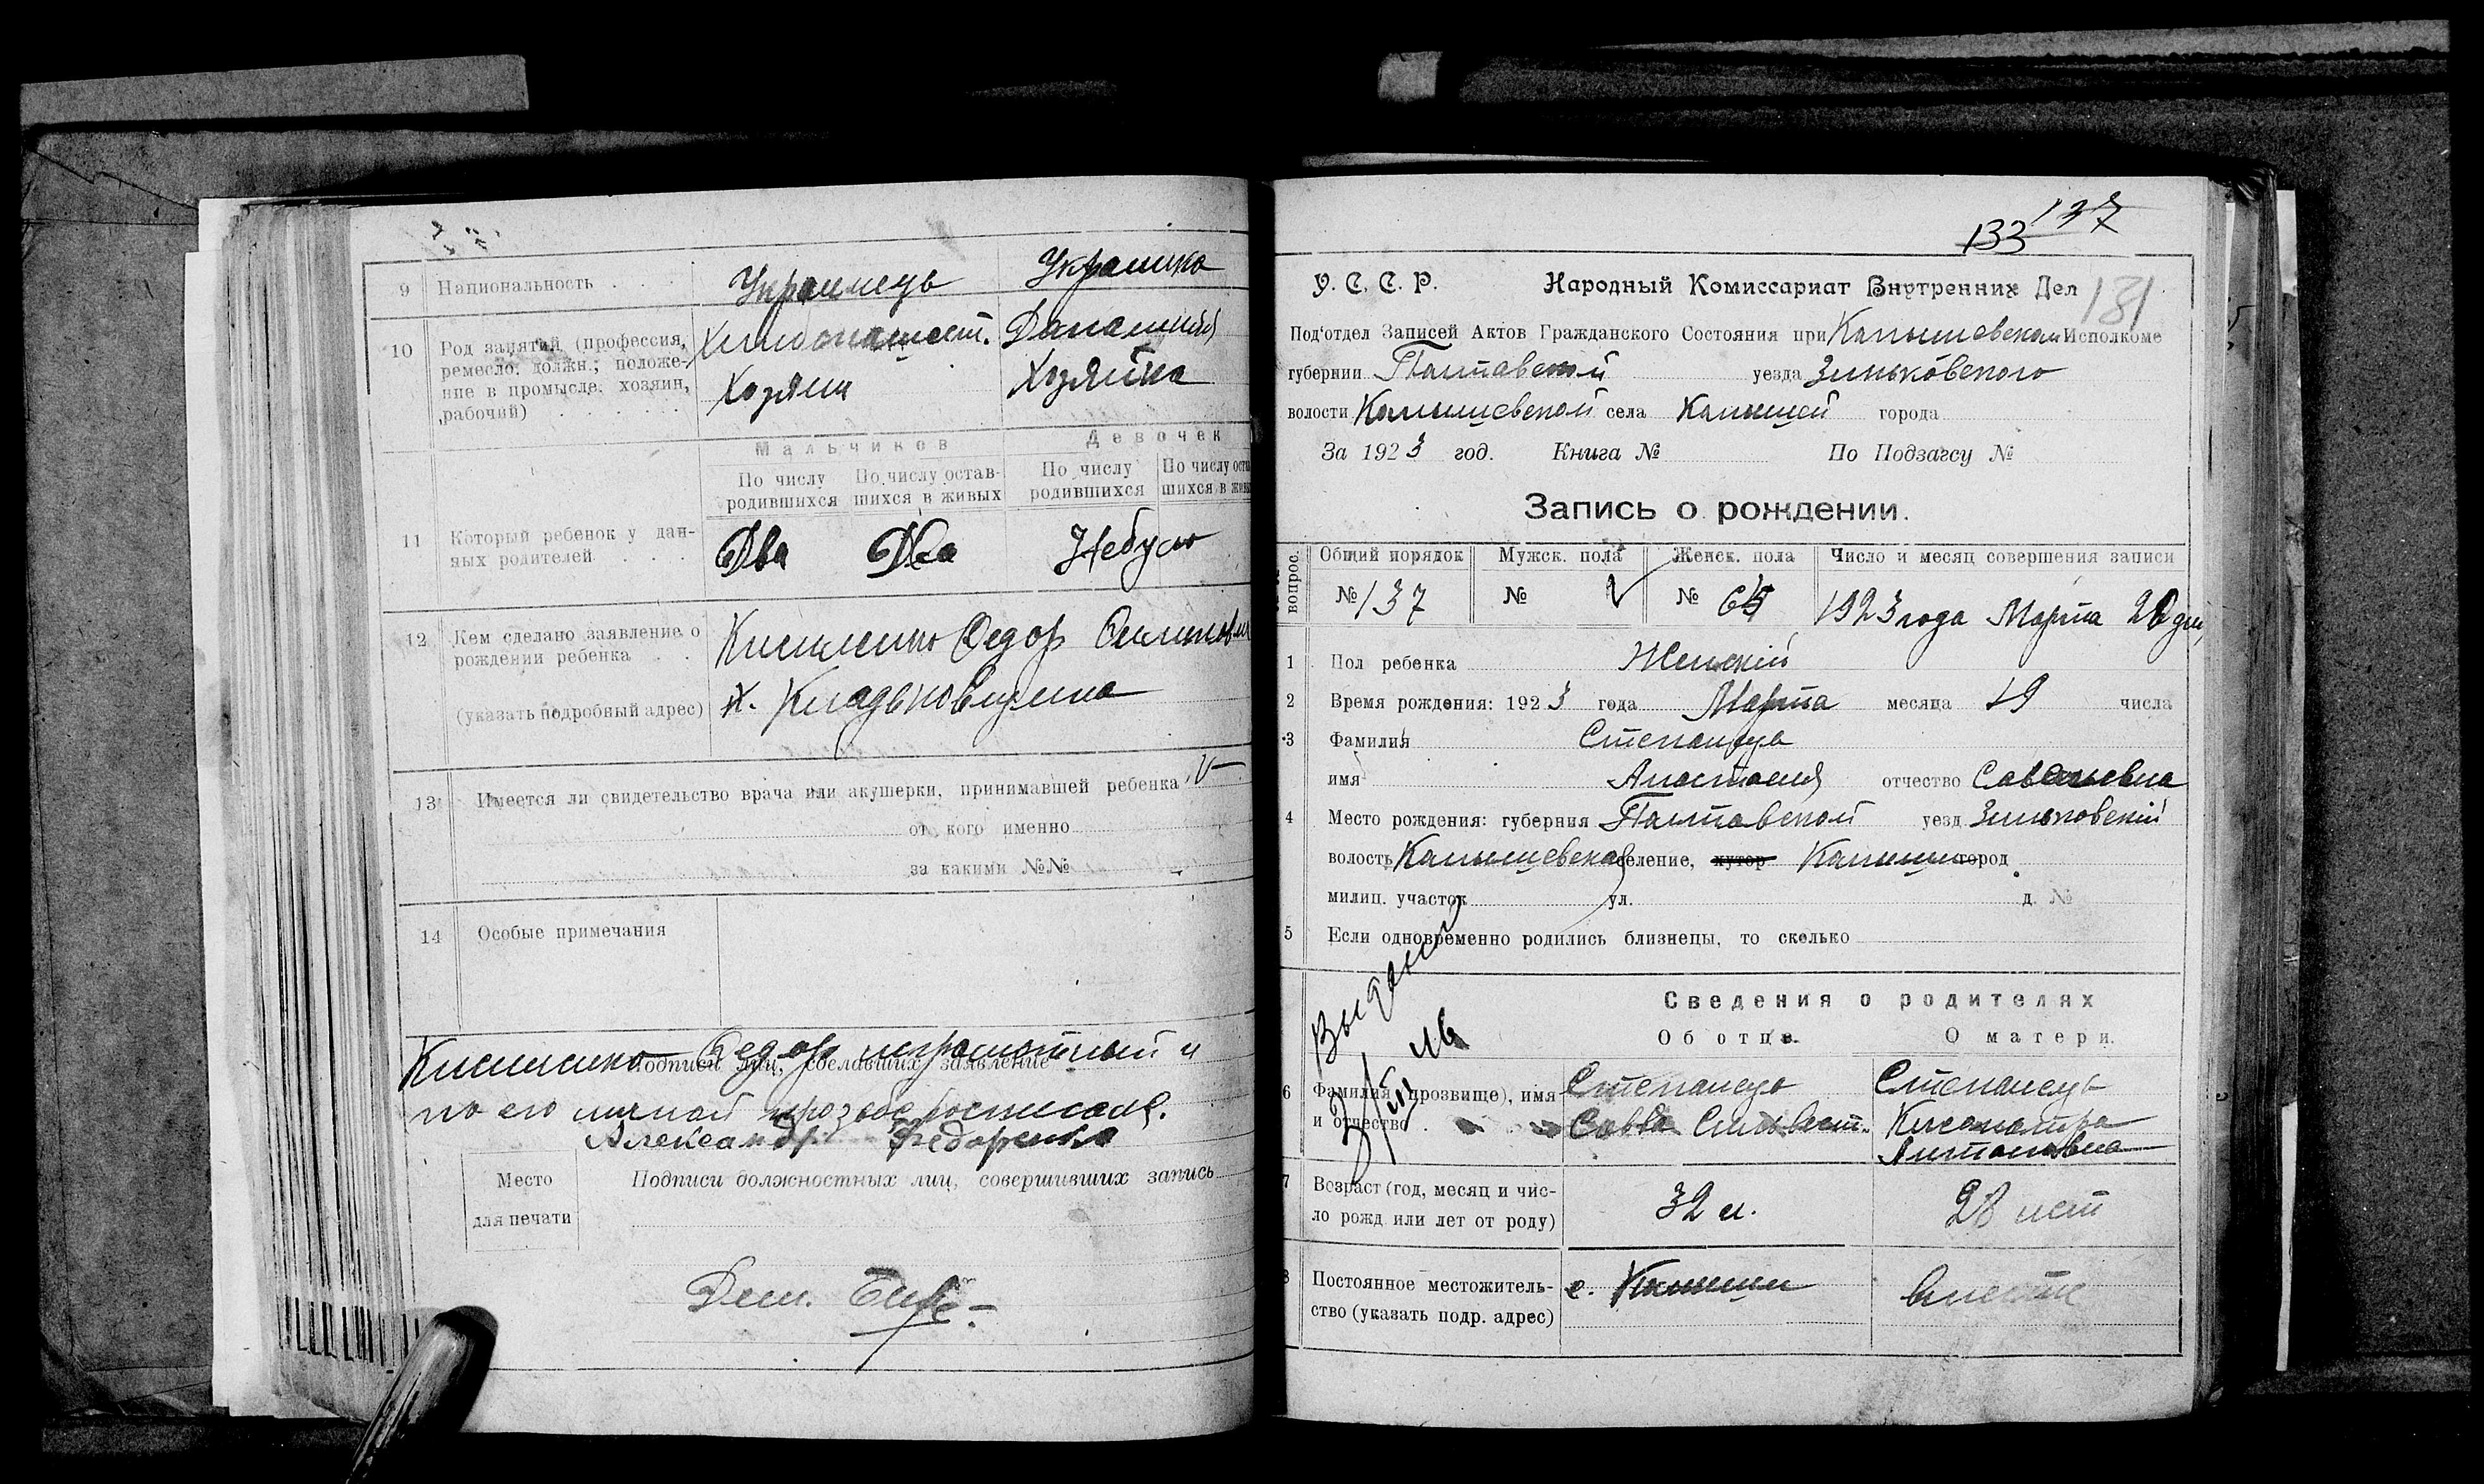 9 Национальность Украинець Украинка
10 Род занятий (профессия, Хлибопашест. Домашняя
ремесло, должн.; положе-
ние в промысле. хозяин, Хозяин Хозяйка
рабочий)
Мальчиков Девочек
По числу По числу остав- По числу По числу оста
родившихся шихся в живых родившихся шихся в жив
11 Который ребенок у дан- Два Два Небуло
ных родителей
12 Кем сделано заявление о
рождении ребенка Федор
(указать подробный адрес) х.
13 Имеется ли свидетельство врача или акушерки, принимавшей ребенка
от кого именно
за какими №№
14 Особые примечания
Федор неграмотный и
Подписи лиц, сделавших заявление
по его личной прозьбе росписался.
Александр Федоренко
Место Подписи должностных лиц, совершивших запись
для печати
133 137
У. С. С. Р. Народный Комиссариат Внутренних Дел 131
Под'отдел Записей Актов Гражданского Состояния при Камышевском Исполкоме
губернии Полтавской уезда Зиньковского
волости Камышевской села Камышей города
За 1923 год. Книга № По Подзагсу №
Запись о рождении.
вопрос. Общий порядок Мужск. пола Женск. пола Число и месяц совершения записи
№ 137 № № 1923 года Марта 20 дня
1 Пол ребенка Женский
2 Время рождения: 1923 года Марта месяца 19 числа
3 Фамилия Степанець
имя Анастасия отчество Савельевна
4 Место рождения: губерния Полтавской уезд Зиньковский
волость Камышевская селение, хутор Камыши город
милиц. участок ул. д. №
5 Если одновременно родились близнецы, то сколько
Выданий
Сведения о родителях
Об отце. О матери.
6 Фамилия (прозвище), имя Степанець Степанець
и отчество Савва Сильвест. Клеопатра
Антоновна
7 Возраст (год, месяц и чис-
ло рожд или лет от роду) 32 л. 28 лет
8 Постоянное местожитель- с. Камыши вместе
ство (указать подр. адрес)